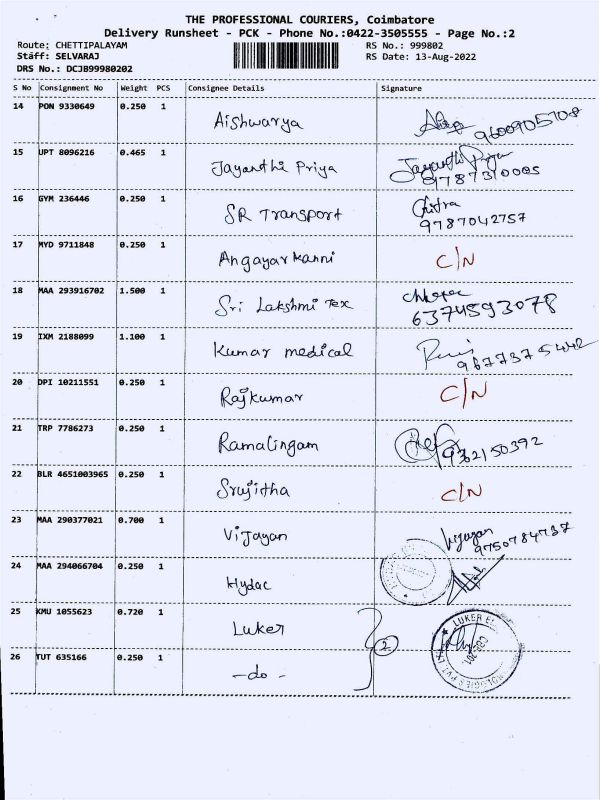 THE PROFESSIONAL COURIERS, Coimbatore
Delivery Runsheet - PCK - Phone No.:0422-3505555 - Page No.:2
Route: CHETTIPALAYAM RS No.: 999802
Staff: SELVARAJ RS Date: 13-Aug-2022
DRS No.: DCJB99980202
S No Consignment No Weight PCS Consignee Details Signature
14 PON 9330649 0.250 1 Aishwarya 9600905708
15 UPT 8096216 0.465 1 Jayanthi Priya Jayanthi Priya
9787310005
16 GYM 236446 0.250 1 SR Transport Chitra
9787042757
17 MYD 9711848 0.250 1 Angayarkanni C/N
18 MAA 293916702 1.500 1 Sri Lakshmi Tex
6374593078
19 IXM 2188099 1.100 1 Kumar medical
9677375442
20 DPI 10211551 0.250 1 Rajkumar C/N
21 TRP 7786273 0.250 1 Ramalingam 9362150392
22 BLR 4651003965 0.250 1 Srujitha C/N
23 MAA 290377021 0.700 1 Vijayan Vijayan
9750784737
24 MAA 294066704 0.250 1 Hydac
25 KMU 1055623 0.720 1 Luker 2 LUKER
26 TUT 635166 0.250 1 -do-